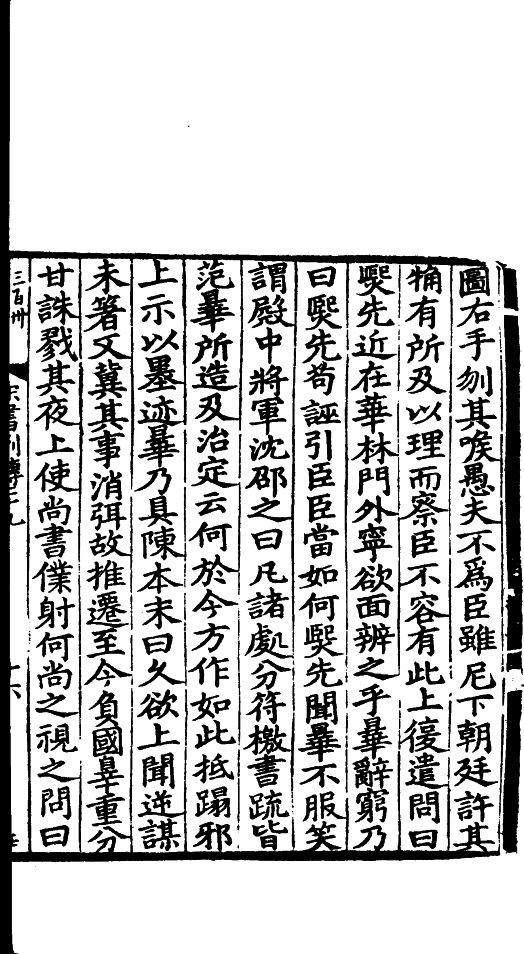 圖右手刎其喉愚夫不爲臣雖尼下朝廷許其
觕有所及以理而察臣不容有此上復遣問曰
熙先近在華林門外寧欲面辨之乎曅辭窮乃
曰熙先苟誣引臣臣當如何熙先聞曅不服笑
謂殿中將軍沈邵之曰凡諸處分符檄書疏皆
范曅所造及治定云何於今方作如此抵蹋邪
上示以墨迹曅乃具陳本末曰久欲上聞逆謀
未著又冀其事消弭故推遷至今負國辠重分
甘誅戮其夜上使尚書僕射何尚之視之問曰
三百卅
宋書列傳二九
十六